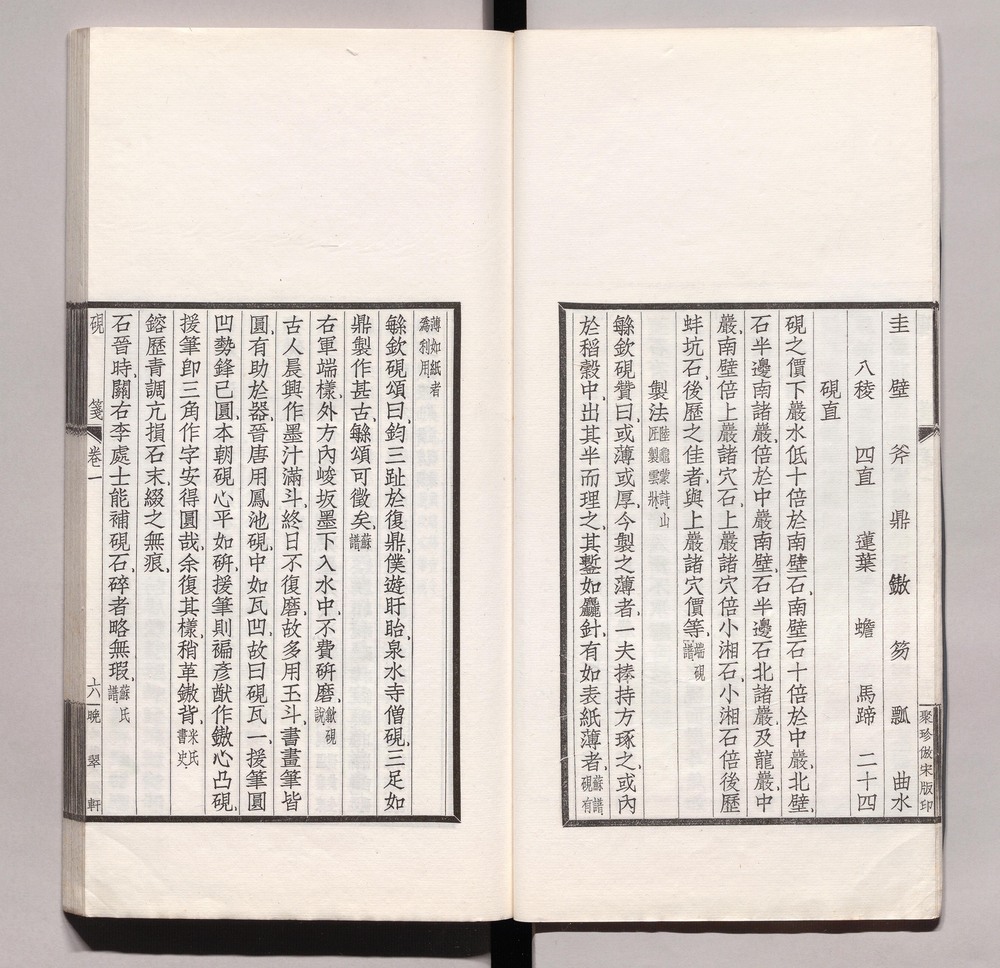 圭 壁 斧 鼎 鏾 笏 瓢 曲水
八稜 四直 蓮葉 蟾 馬蹄 二十四
硯直
硯之價下巖水低十倍於南壁石南壁石十倍於中巖北壁
石半邊南諸巖倍於中巖南壁石半邊石北諸巖及龍巖中
巖南壁倍上巖諸穴石上巖諸穴倍小湘石小湘石倍後歷
蚌坑石後歷之佳者與上巖諸穴價等端硯
譜
製法陸龜蒙詩山
匠製雲牀
緐欽硯贊曰或薄或厚今製之薄者一夫捧持方琢之或內
於稻穀中出其半而理之其鏨如麤針有如表紙薄者蘇譜
硯有
聚珍倣宋版印
薄如紙者
爲利用
緐欽硯頌曰鈞三趾於復鼎僕遊盱眙泉水寺僧硯三足如
鼎製作甚古緐頌可徵矣蘇
譜
右軍端樣外方內峻坂墨下入水中不費硏磨歙硯
說
古人晨興作墨汁滿斗終日不復磨故多用玉斗書畫筆皆
圓有助於器晉唐用鳳池硯中如瓦凹故曰硯瓦一援筆圓
凹勢鋒已圓本朝硯心平如硏援筆則褊彥猷作鏾心凸硯
援筆卽三角作字安得圓哉余復其樣稍革鏾背米氏
書史
鎔歷青調亢損石末綴之無痕
石晉時關右李處士能補硯石碎者略無瑕蘇氏
譜
硯 箋 卷一 六 晚翠軒